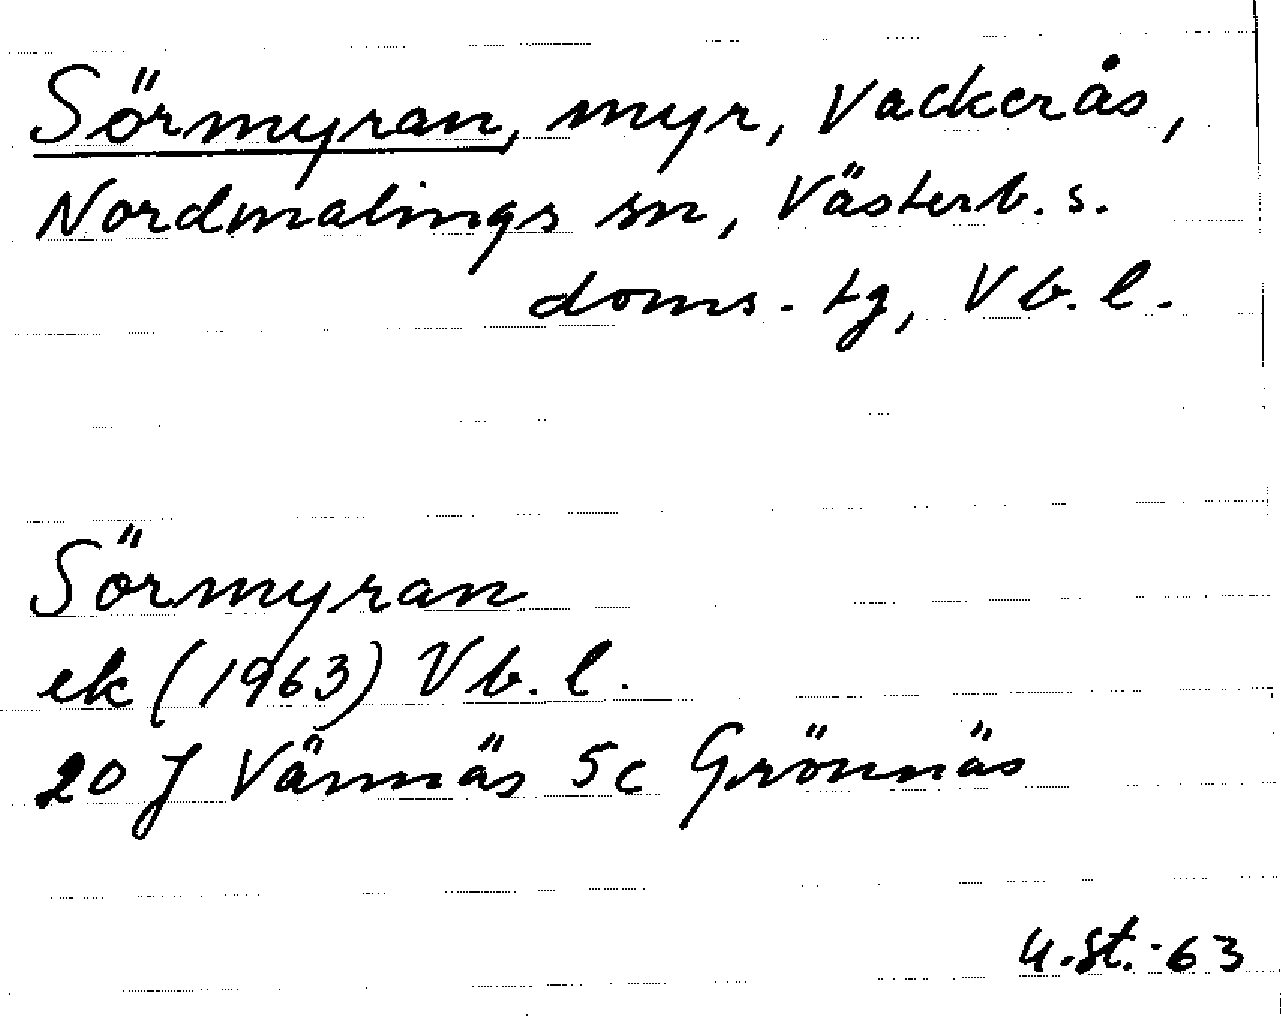 Sörmyran, myr, Vackerås,
Nordmalings sn, Västerb. s.
doms. tg, Vb. l.
Sörmyran
ek (1963) Vb. l.
20 J Vännäs 5c Grönnäs
u.st.-63